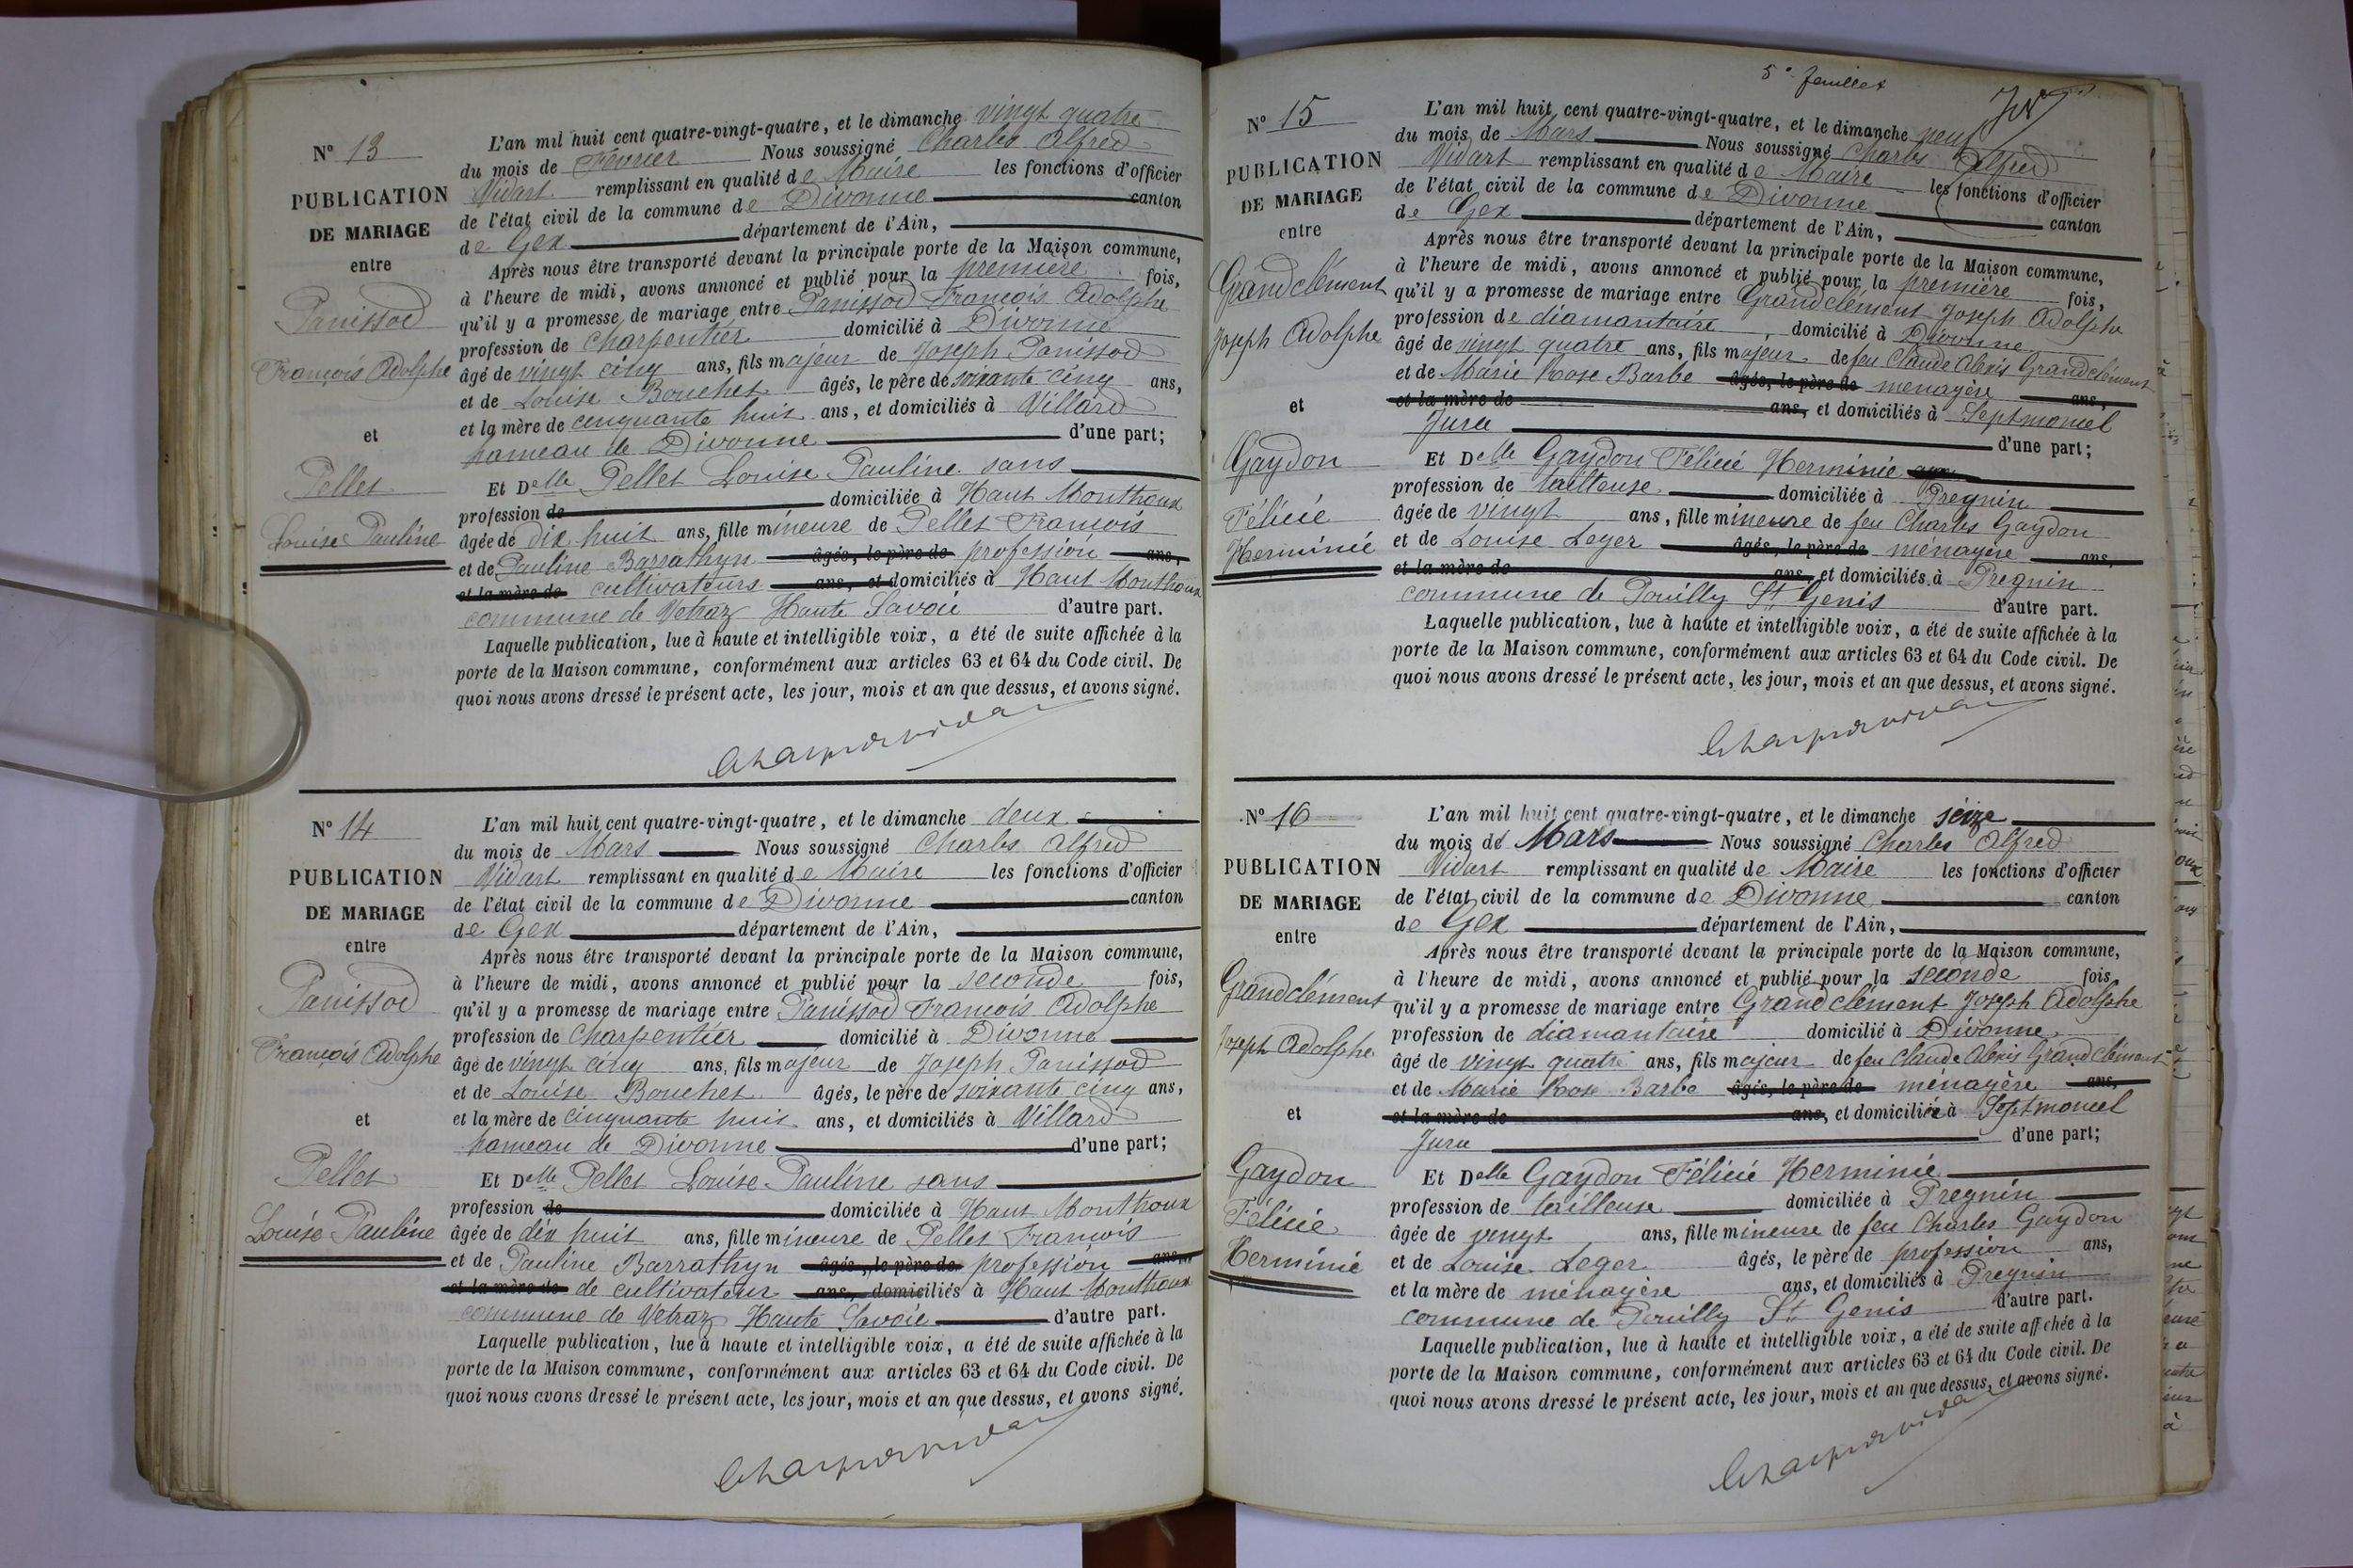 N° 13
PUBLICATION
DE MARIAGE
entre
Panissod
François Adolphe
et
Pellet
Louise Pauline
L'an mil huit cent quatre-vingt-quatre, et le dimanche vingt quatre
du mois de Février Nous soussigné Charles Alfred
Vidart remplissant en qualité de Maire les fonctions d'officier
de l'état civil de la commune de Divonne canton
de Gex département de l'Ain,
Après nous être transporté devant la principale porte de la Maison commune,
à l'heure de midi, avons annoncé et publié pour la première fois,
qu'il y a promesse de mariage entre Panissod François Adolphe
profession de charpentier domicilié à Divonne
âgé de vingt cinq ans, fils majeur de Joseph Panissod
et de Louise Bouchet âgés, le père de soixante cinq ans,
et la mère de cinquante huit ans, et domiciliés à Villard
hameau de Divonne d'une part;
Et Delle Pellet Louise Pauline sans
profession de domiciliée à Haut Monthoux
âgée de dix huit ans, fille mineure de Pellet François
et de Pauline Barrathyn âgés, le père de profession ans,
et la mère de cultivateurs ans, et domiciliés à Haut Monthoux
commune de Vetraz Haute Savoie d'autre part.
Laquelle publication, lue à haute et intelligible voix, a été de suite affichée à la
porte de la Maison commune, conformément aux articles 63 et 64 du Code civil. De
quoi nous avons dressé le présent acte, les jour, mois et an que dessus, et avons signé.
N° 14
PUBLICATION
DE MARIAGE
entre
Panissod
François Adolphe
et
Pellet
Louise Pauline
L'an mil huit cent quatre-vingt-quatre, et le dimanche deux
du mois de Mars Nous soussigné Charles Alfred
Vidart remplissant en qualité de Maire les fonctions d'officier
de l'état civil de la commune de Divonne canton
de Gex département de l'Ain,
Après nous être transporté devant la principale porte de la Maison commune,
à l'heure de midi, avons annoncé et publié pour la seconde fois,
qu'il y a promesse de mariage entre Panissod François Adolphe
profession de Charpentier domicilié à Divonne
âgé de vingt cinq ans, fils majeur de Joseph Panissod
et de Louise Bouchet âgés, le père de soixante cinq ans,
et la mère de cinquante huit ans, et domiciliés à Villard
hameau de Divonne d'une part;
Et Delle Pellet Louise Pauline sans
profession de domiciliée à Haut Monthoux
âgée de dix huit ans, fille mineure de Pellet François
et de Pauline Barrathyn âgés, le père de profession ans,
et la mère de de cultivateur ans, domiciliés à Haut Monthoux
commune de Vetraz Haute Savoie d'autre part.
Laquelle publication, lue à haute et intelligible voix, a été de suite affichée à la
porte de la Maison commune, conformément aux articles 63 et 64 du Code civil. De
quoi nous avons dressé le présent acte, les jour, mois et an que dessus, et avons signé.
5e feuillet
N° 15
PUBLICATION
DE MARIAGE
entre
Grandclément
Joseph Adolphe
et
Gaydon
Félicié
Herminie
L'an mil huit cent quatre-vingt-quatre, et le dimanche neuf
du mois de Mars Nous soussigné Charles Alfred
Vidart remplissant en qualité de Maire les fonctions d'officier
de l'état civil de la commune de Divonne canton
de Gex département de l'Ain,
Après nous être transporté devant la principale porte de la Maison commune,
à l'heure de midi, avons annoncé et publié pour la première fois,
qu'il y a promesse de mariage entre Grandclément Joseph Adolphe
profession de diamantaire domicilié à Divonne
âgé de vingt quatre ans, fils majeur de feu Claude Alexis Grandclément
et de Marie Rose Barbe âgés, le père de ménagère ans,
et la mère de ans, et domiciliés à Septmoncel
Jura d'une part;
Et Delle Gaydon Félicié Herminie
profession de tailleuse domiciliée à Pregnin
âgée de vingt ans, fille mineure de feu Charles Gaydon
et de Louise Leger âgés, le père de ménagère ans,
et la mère de ans, et domiciliés à Pregnin
commune de Pouilly St Genis d'autre part.
Laquelle publication, lue à haute et intelligible voix, a été de suite affichée à la
porte de la Maison commune, conformément aux articles 63 et 64 du Code civil. De
quoi nous avons dressé le présent acte, les jour, mois et an que dessus, et avons signé.
N° 16
PUBLICATION
DE MARIAGE
entre
Grandclément
Joseph Adolphe
et
Gaydon
Félicié
Herminie
L'an mil huit cent quatre-vingt-quatre, et le dimanche seize
du mois de Mars Nous soussigné Charles Alfred
Vidart remplissant en qualité de Maire les fonctions d'officier
de l'état civil de la commune de Divonne canton
de Gex département de l'Ain,
Après nous être transporté devant la principale porte de la Maison commune,
à l'heure de midi, avons annoncé et publié pour la seconde fois,
qu'il y a promesse de mariage entre Grandclément Joseph Adolphe
profession de diamantaire domicilié à Divonne
âgé de vingt quatre ans, fils majeur de feu Claude Alexis Grandclément
et de Marie Rose Barbe âgés, le père de ménagère ans,
et la mère de ans, et domiciliée à Septmoncel
Jura d'une part;
Et Delle Gaydon Félicié Herminie
profession de tailleuse domiciliée à Pregnin
âgée de vingt ans, fille mineure de feu Charles Gaydon
et de Louise Leger âgés, le père de profession ans,
et la mère de ménagère ans, et domiciliés à Pregnin
commune de Pouilly St Genis d'autre part.
Laquelle publication, lue à haute et intelligible voix, a été de suite affichée à la
porte de la Maison commune, conformément aux articles 63 et 64 du Code civil. De
quoi nous avons dressé le présent acte, les jour, mois et an que dessus, et avons signé.